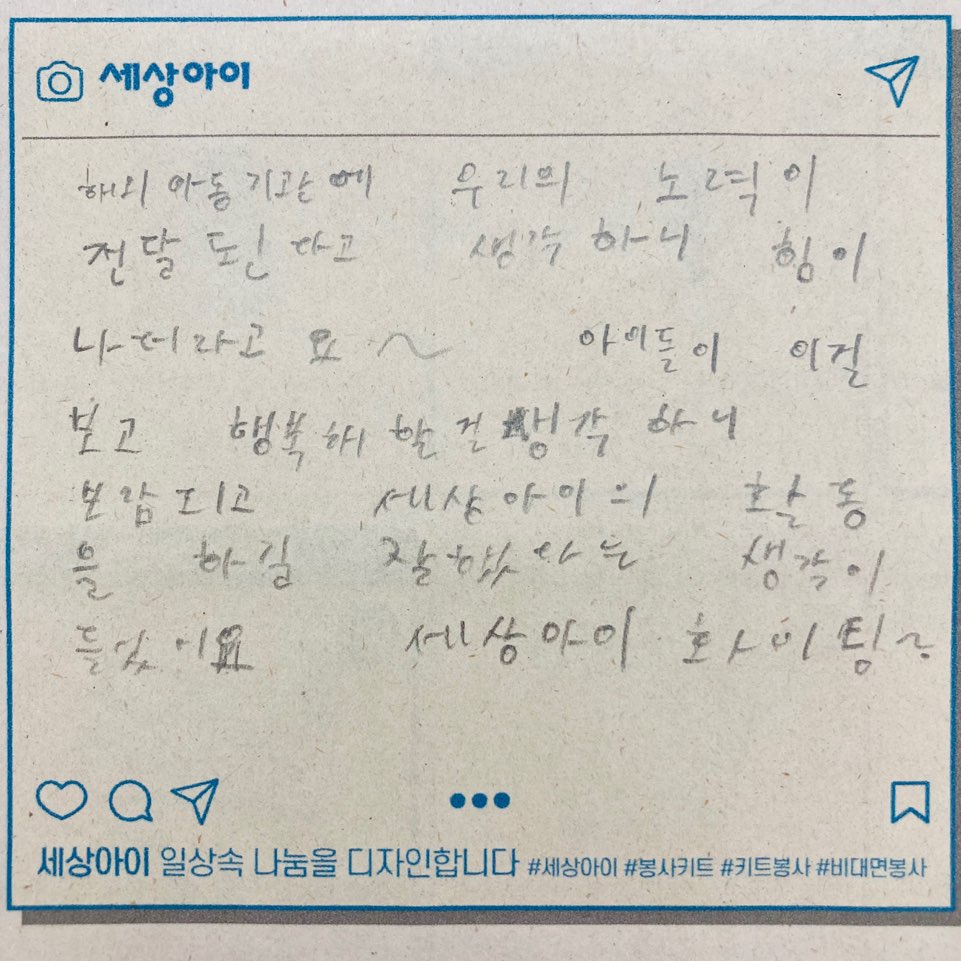 세상아이
해외 아동 기관에 우리의 노력이
전달 된 다고 생각 하니 힘이
나더라고 요~ 아이들이 이걸
보고 행복해 할걸 생각 하니
보람되고 세상아이의 활동
을 하길 잘했다는 생각이
들었어요 세상아이 화이팅~
세상아이 일상속 나눔을 디자인합니다 #세상아이 #봉사키트 #키트봉사 #비대면봉사